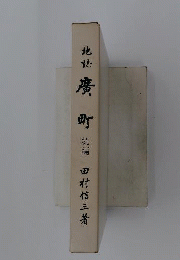 地誌
廣町
田村信三著